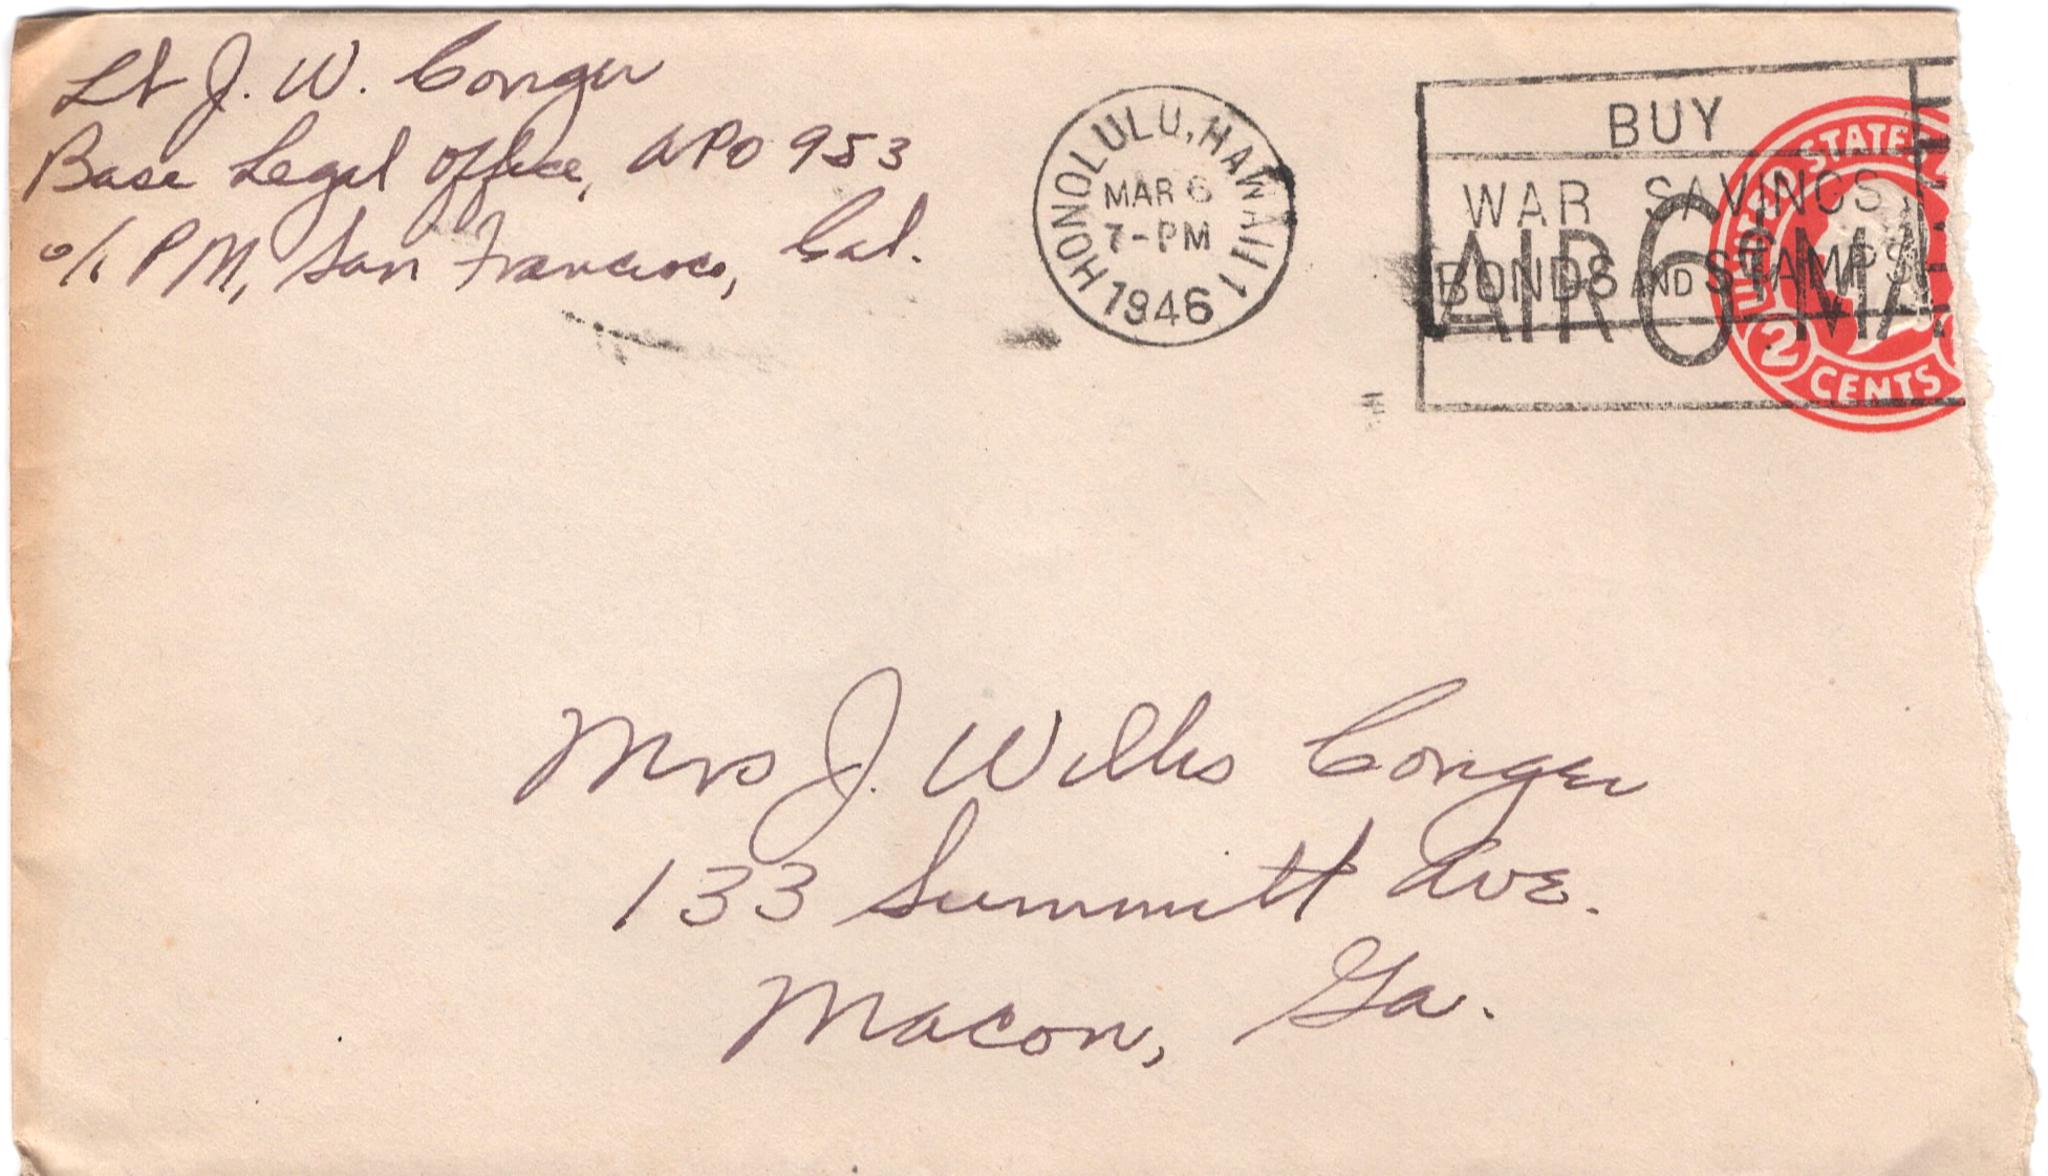 Lt J. W. Conger
Base Legal Office, APO 953
c/o PM, San Francisco, Cal.
HONOLULU, HAWAII 1
MAR 6
7-PM
1946
BUY
WAR SAVINGS
BONDS AND STAMPS
AIR 6¢ MA
UNITED STATES
2
CENTS
Mrs J. Willis Conger
133 Summitt Ave.
Macon, Ga.